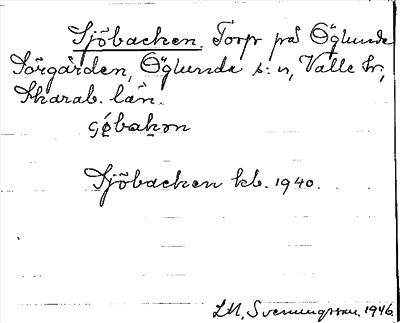 Sjöbacken. Torp på Öglunda
Sörgården, Öglunda s:n, Valle hr,
Skarab. län.
Sjöbacken kb. 1940.
LM, Svenungsson. 1946